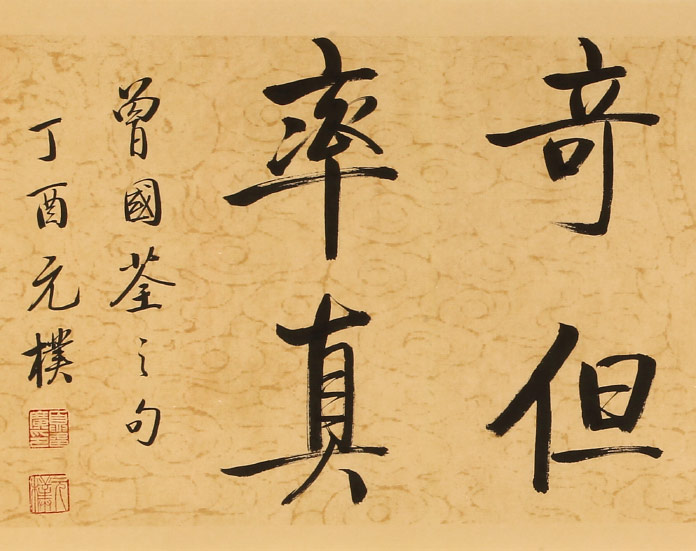 奇但
率真
曾國荃之句
丁酉元樸